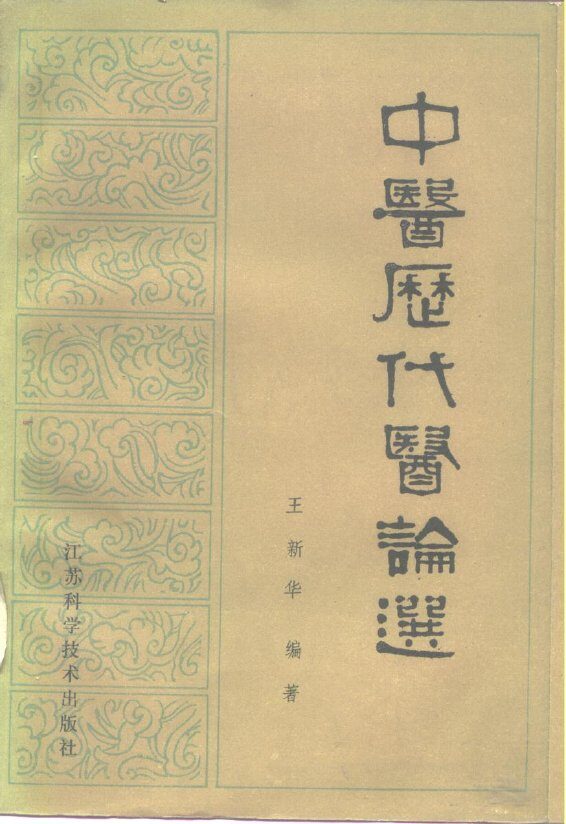 中醫歷代醫論選
王新华 编著
江苏科学技术出版社